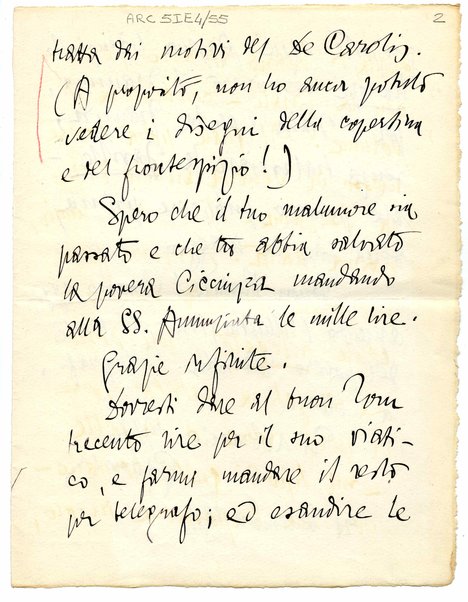 ARC 5IE4/55
2
tratta dai motivi del De Carolis.
(A proposito, non ho ancor potuto
vedere i disegni della copertina
e del frontespizio!)
Spero che il tuo malumore sia
passato e che tu abbia salvato
la povera Ciccinza mandando
alla SS. Annunziata le mille lire.
Grazie infinite.
Dovresti dare al buon Tom
trecento lire per il suo viati-
co, e farmi mandare il resto
per telegrafo; ed esaudire le